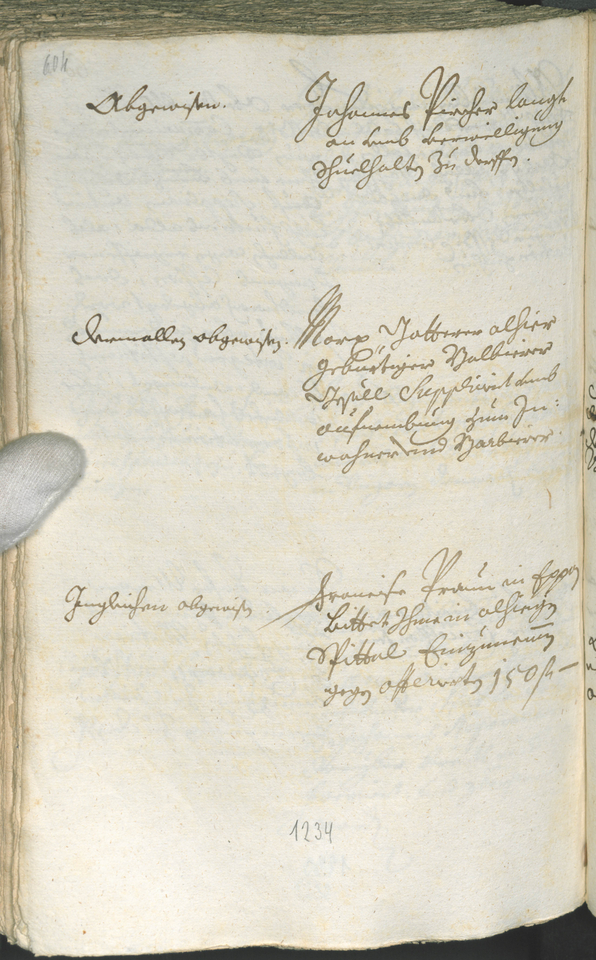 604
Abgewisen.
Johannes Pircher langt
an umb Bewilligung
Schuelhalten zu derffen.
Dermallen abgewisen.
Marx Jatterer alhier
gebürtiger Balbierer
Gsöll Supplicirt umb
aufnembung zum In:
wohner und Barbierer.
Jngleichen abgewisen
Francisc Praun in Eppan
bittet Jhme in alhiesigen
Spittal Einzunemen
gegen offerirten 150 f
1234